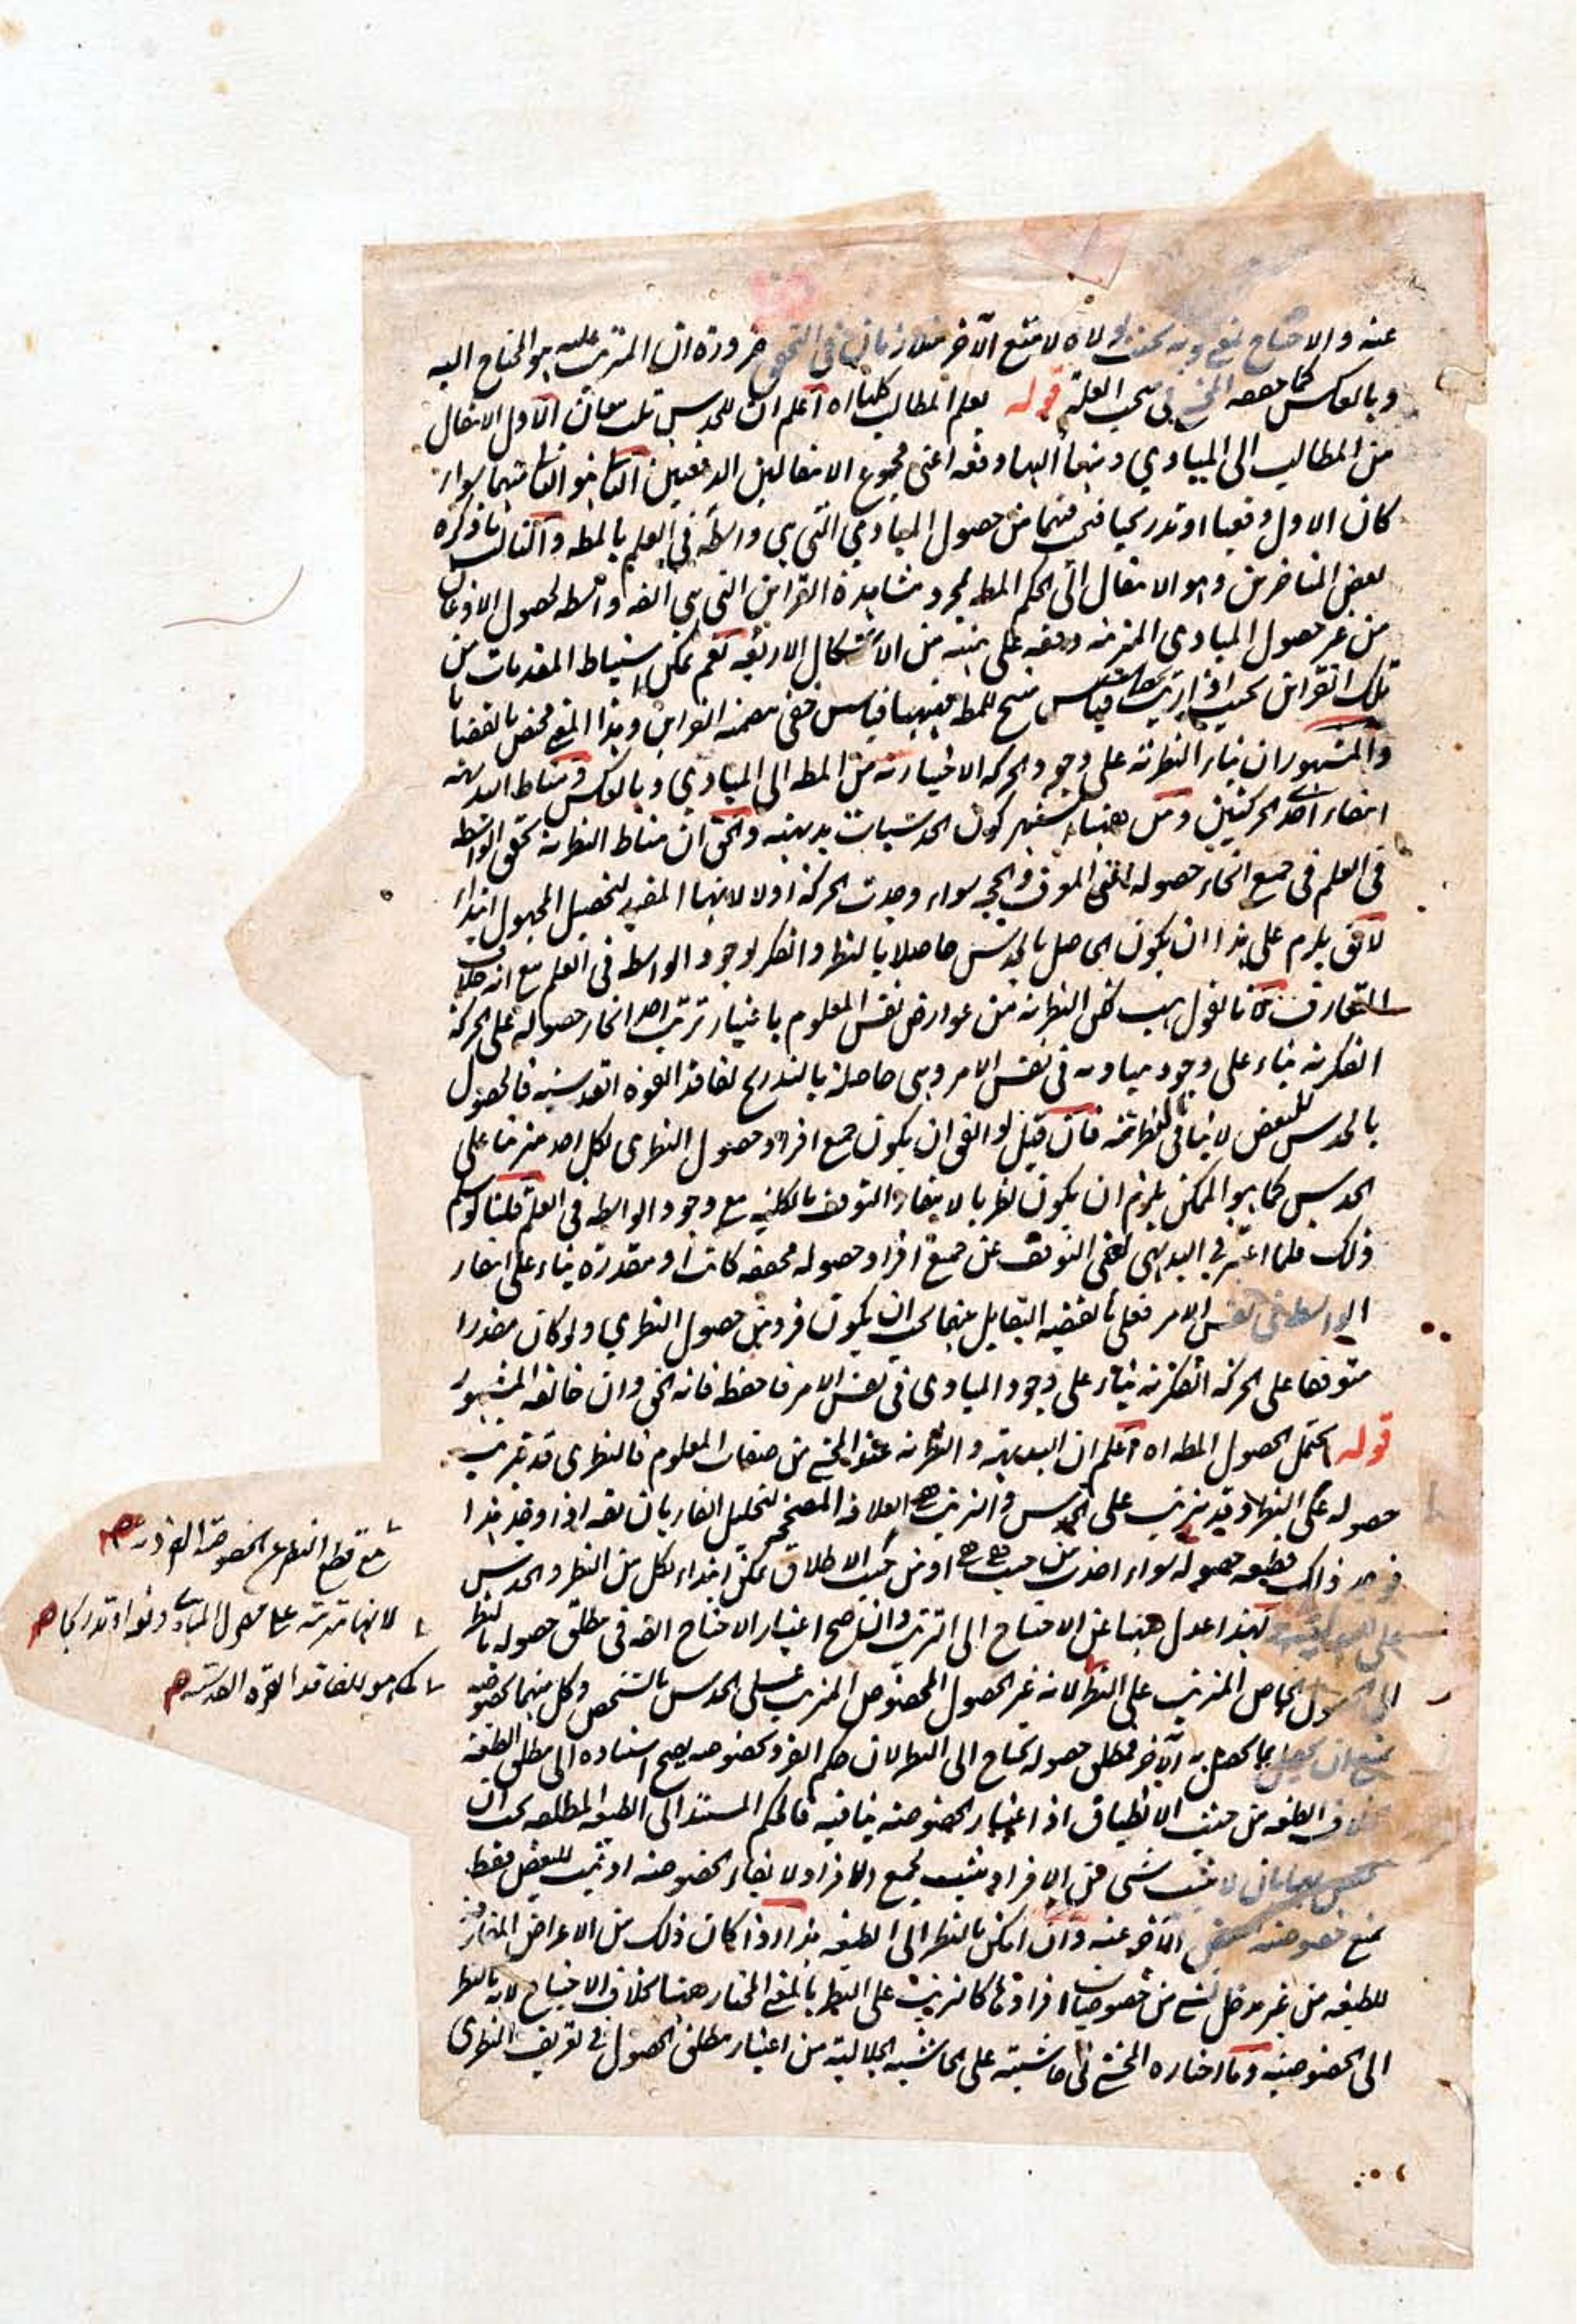 عنه والاحتياج نفع وبه بحيث لولاه لامتنع الآخر متلازمان في التحقق ضرورة ان المترتب عليه هو المحتاج اليه
وبالعكس كما حققه المحشي في بحث العلة قوله يعلم المطالب كلها اه اعلم ان للحدس ثلث معان الاول الانتقال
من المطالب الى المبادي ومنها اليها دفعة اعني مجموع الانتقالين الدفعيين الثاني هو الثاني منهما سواء
كان الاول دفعيا او تدريجيا فيجب فيهما من حصول المبادي التي هي واسطة في العلم بالمط والثالث ما ذكره
بعض المتاخرين وهو الانتقال الى الحكم المط بمجرد مشاهدة القراين التي هي واسطة لحصول الاذعان
من غير حصول المبادي المترتبة دفعة على هيئة من الاشكال الاربعة نعم يمكن استنباط المقدمات من
تلك القراين بحيث اذا رتبت قياس منتج للمط ففيها قياس خفي تضمنه القراين وهذا المعنى مختص بالقضايا
والمشهور ان بناء النظرية على وجود الحركة الاختيارية من المط الى المبادي وبالعكس ومناط البديهة
انتفاء احد الحركتين ومن ههنا اشتهر كون الحدسيات بديهية والحق ان مناط النظرية تحقق الواسطة
في العلم في جميع انحاء حصوله اعني المعرف والحجة سواء وجدت الحركة اولا لانها المفيد لتحصيل المجهول ابتداء
لا يق يلزم على هذا ان يكون الحاصل بالحدس حاصلا بالنظر والفكر لوجود الواسطة في العلم مع انه خلاف
المتعارف لانا نقول هب لكن النظرية من عوارض نفس المعلوم باعتبار ترتب احد انحاء حصوله على الحركة
الفكرية بناء على وجود مباديه في نفس الامر وهي حاصلة بالتدريج لفاقد القوة القدسية فالحصول
بالحدس للبعض لا ينافي النظرية فان قيل لو اتفق ان يكون جميع افراد حصول النظري لكل احد مترتبا على
الحدس كما هو الممكن يلزم ان يكون نظريا لانتفاء التوقف بالكلية مع وجود الواسطة في العلم قلنا لو سلم
ذلك فلما اعتبر في البديهي نفي التوقف عن جميع افراد حصوله محققة كانت او مقدرة بناء على انتفاء
الواسطة في نفس الامر فعلى ما يقتضيه التقابل بينهما يجب ان يكون فرد من حصول النظري ولو كان مقدرا
متوقفا على الحركة الفكرية بناء على وجود المبادي في نفس الامر فاحفظ فانه الحق وان خالفه المشهور
قوله يحتمل لحصول المط اه اعلم ان البديهية والنظرية عند المحشي من صفات المعلوم فالنظري قد يترتب
حصوله على النظر وقد يترتب على الحدس والترتب هو العلاقة المصححة لتخليل الفاء بان يقه اذا وجد هذا
فوجد ذلك فطبيعة حصوله سواء اخذت من حيث هي هي او من حيث الاطلاق يمكن ابتداء لكل من النظر والحدس
ولهذا عدل ههنا عن الاحتياج الى الترتب وان صح اعتبار الاحتياج الى في مطلق حصوله بالنظر
الى الحصول الحاصل المترتب على النظر لانه غير الحصول المخصوص المترتب على الحدس بالشخص وكل منهما بخصوصه
يمتنع ان يحصل بما يحصل به الآخر فمطلق حصوله يحتاج الى النظر لان حكم الفرد بخصوصه يصح استناده الى مطلق الطبيعة
بخلاف الطبيعة من حيث الاطلاق اذ اعتبار الخصوصية ينافيه فالحكم المستند الى الطبيعة المطلقة يجب ان
لا يثبت شيء من الافراد يثبت لجميع الافراد لانتفاء الخصوصية او يثبت للبعض فقط
يمنع خصوصية الآخر عنه وان امكن بالنظر الى الطبيعة هذا اذا كان ذلك من الاعراض المتعارفة
للطبيعة من غير مدخل لشيء من خصوصيات افرادها كالترتب على النظر بالمعنى المختار ههنا بخلاف الاحتياج لانه بالنظر
الى الخصوصية وما اختاره المحشي في حاشيته على الحاشية الجلالية من اعتبار مطلق الحصول في تعريف النظري
مع قطع النظر عن الخصوصية
لانها مترتبة على حصول المبادي دفعة او تدريجا
كما هو للفاقد القوة القدسية